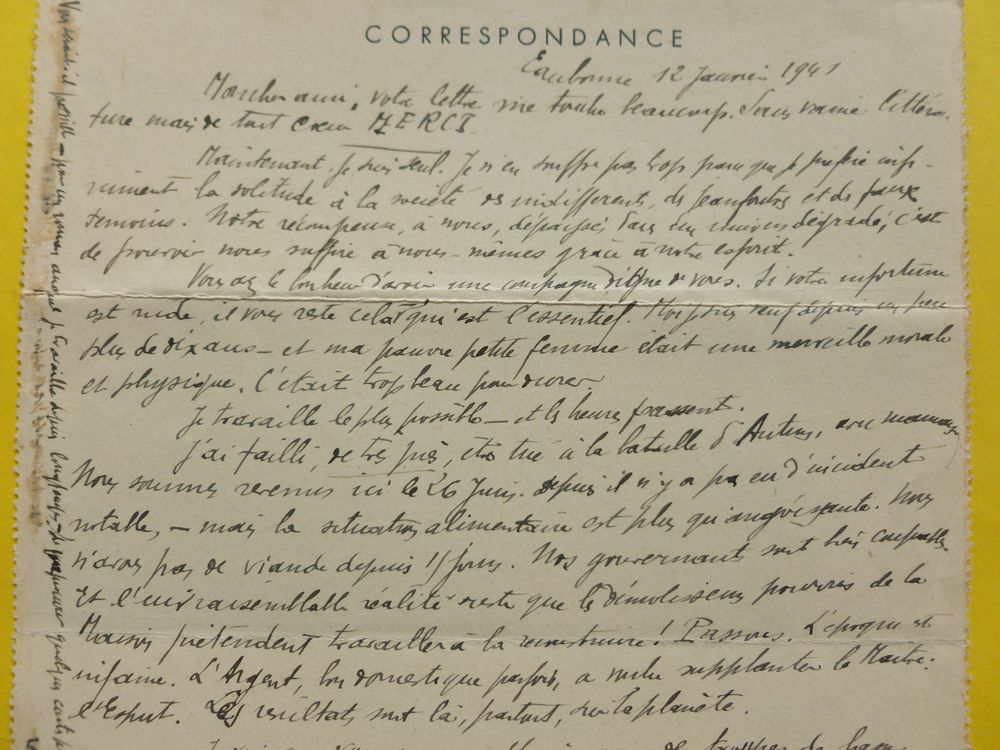 CORRESPONDANCE
Eaubonne 12 Janvier 1941
Mon cher ami, votre lettre me touche beaucoup. Sans vaine littéra-
ture mais de tout cœur MERCI.
Maintenant je suis seul. Je n'en souffre pas trop parce que je préfère infi-
niment la solitude à la société des indifférents, de jeanfoutres et de faux
témoins. Notre récompense, à nous, dépaysés dans un univers dégradé, c'est
de pouvoir nous suffire à nous-mêmes grâce à notre esprit.
Vous avez le bonheur d'avoir une compagne digne de vous. Si votre infortune
est rude, il vous reste cela qui est l'essentiel. Moi je suis veuf depuis un peu
plus de dix ans - et ma pauvre petite femme était une merveille morale
et physique. C'était trop beau pour durer.
Je travaille le plus possible - et les heures passent.
J'ai failli, de très près, être tué à la bataille d'
Nous sommes revenus ici le 26 Juin. depuis il n'y a pas eu d'incident
notable, - mais la situation alimentaire est plus qu'angoissante. Nous
n'avons pas de viande depuis 15 jours. Nos gouvernants sont bien coupables.
Et l'invraisemblable réalité reste que les démolisseurs pourris de la
Maison prétendent travailler à la reconstruire! Passons. L'époque est
infâme. L'Argent, bon domestique parfois, a voulu supplanter le Maître:
l'Esprit. Les résultats sont là, partout, sur la planète.
de troupes de